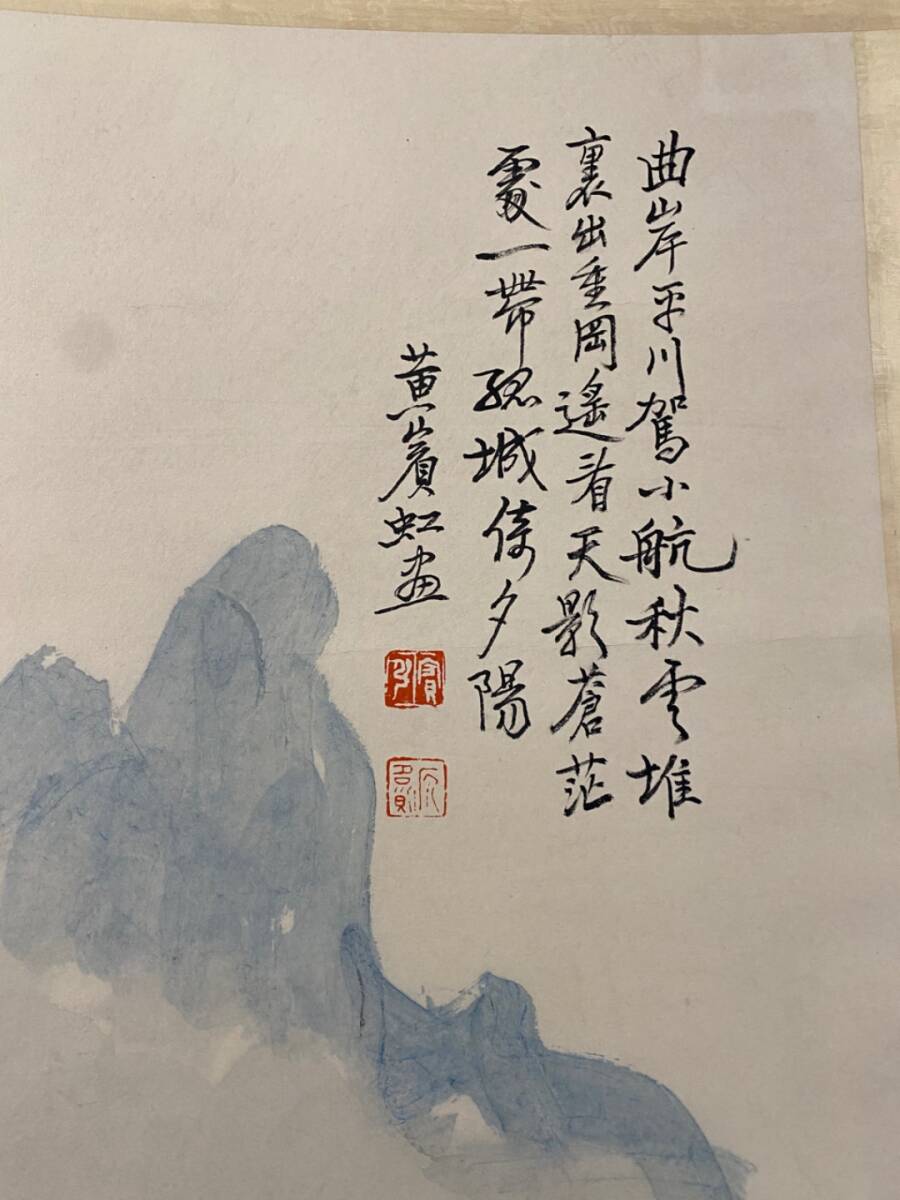 曲岸平川駕小航秋雲堆
裏出重岡遙看天影蒼茫
處一帶孤城倚夕陽
黃賓虹畫
賓虹